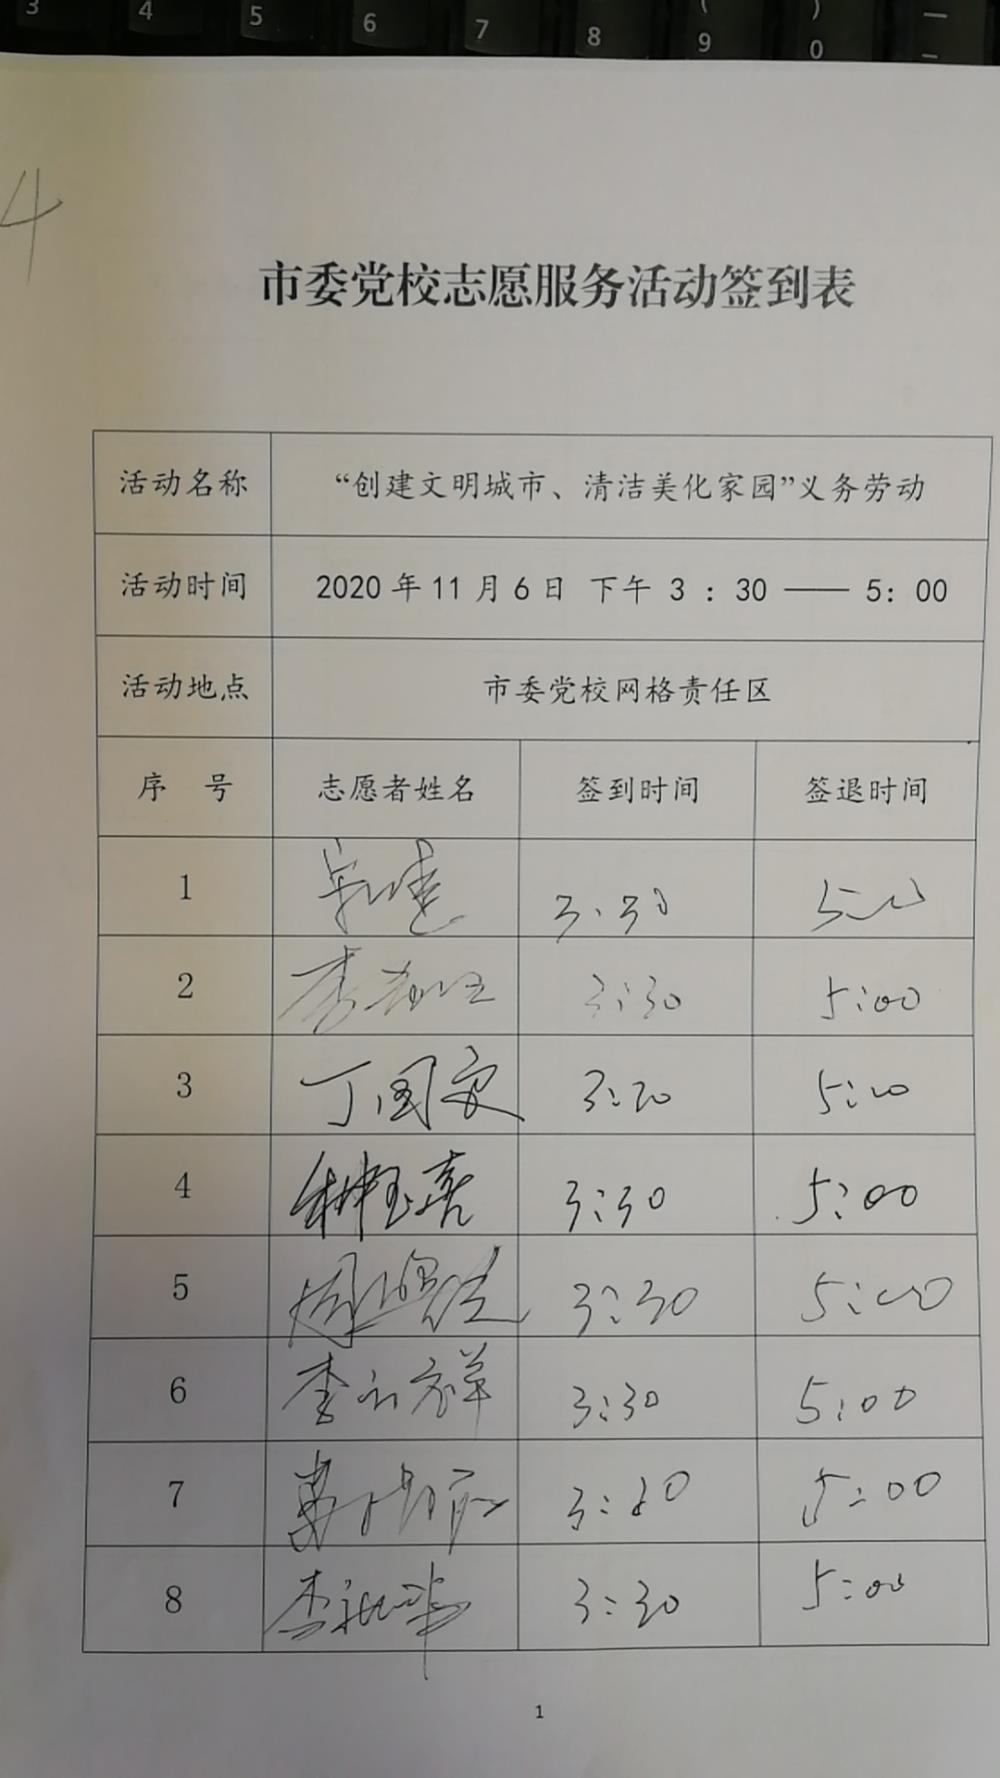 3 4 5 6 7 8 ( 9 ) 0 — –
4
市委党校志愿服务活动签到表
活动名称 “创建文明城市、清洁美化家园”义务劳动
活动时间 2020年11月6日 下午 3 : 30 —— 5: 00
活动地点 市委党校网格责任区
序 号 志愿者姓名 签到时间 签退时间
1 3:30 5:00
2 李 3:30 5:00
3 丁国安 3:30 5:00
4 3:30 5:00
5 周 3:30 5:00
6 李 祥 3:30 5:00
7 3:30 5:00
8 李 3:30 5:00
1